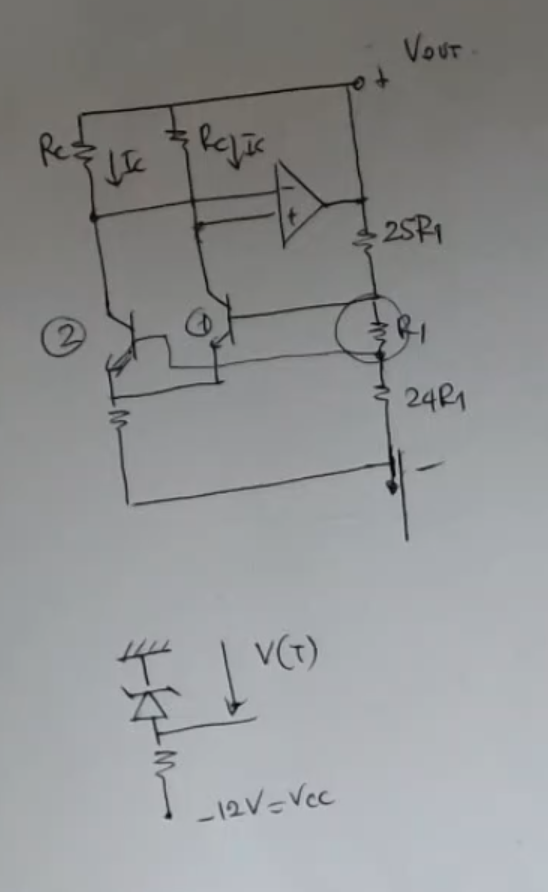 VOUT
+
Rc
Ic
Rc
Ic
-
+
25R1
②
①
R1
24R1
-
V(T)
-12V=Vcc